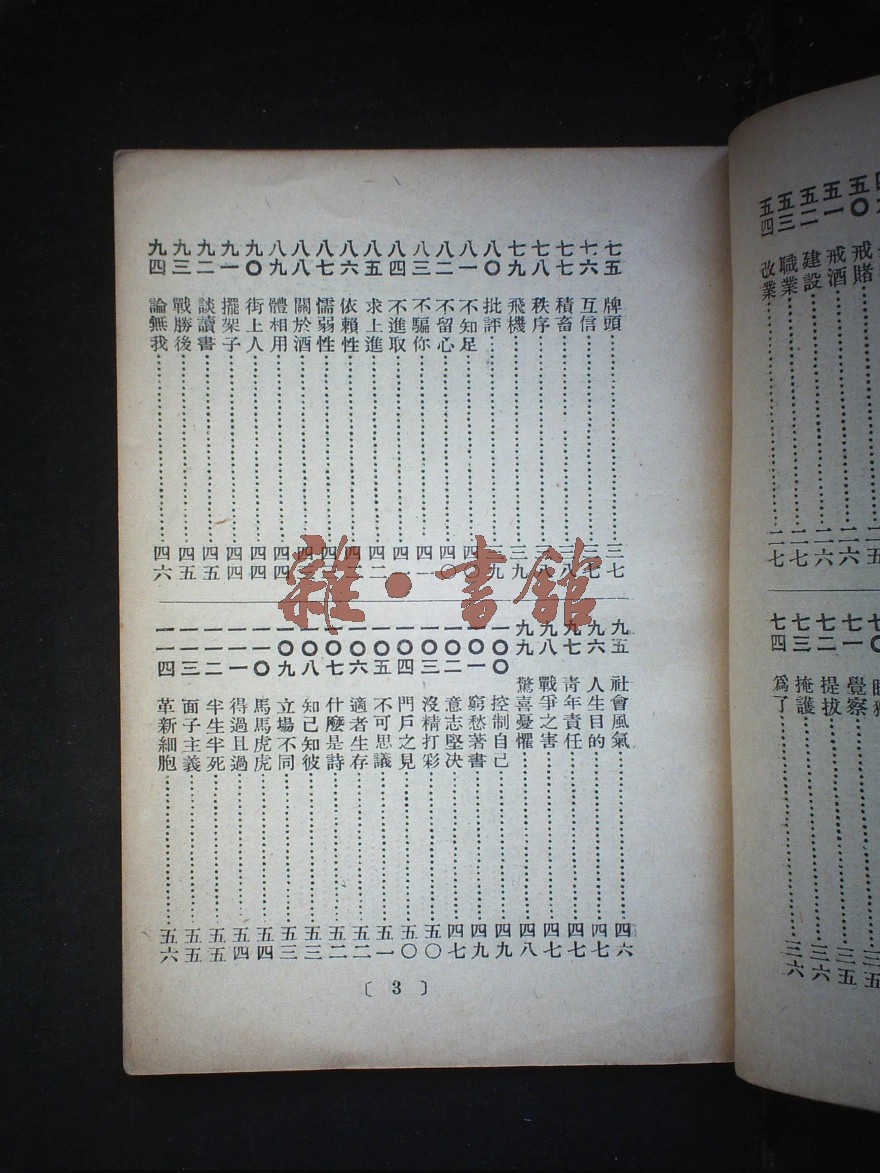 五〇 戒賭 二五
五一 戒酒 二六
五二 建設 二六
五三 職業 二七
五四 改業 二七
七〇
七一 覺察 三五
七二 提拔 三五
七三 掩護 三六
七四 爲了 三六
七五 牌頭 三七
七六 互信 三七
七七 積畜 三八
七八 秩序 三八
七九 飛機 三九
八〇 批評 三九
八一 不知足 四〇
八二 不留心 四〇
八三 不驅你 四一
八四 不進取 四一
八五 求上進 四二
八六 依賴性 四
八七 懦弱性 四
八八 關於酒 四
八九 體相用 四四
九〇 街上人 四四
九一 擺架子 四四
九二 談讀書 四五
九三 戰勝後 四五
九四 論無我 四六
九五 社會風氣 四六
九六 人生目的 四七
九七 靑年責任 四七
九八 戰爭之害 四七
九九 驚喜憂懼 四八
一〇〇 控制自己 四九
一〇一 窮愁著書 四九
一〇二 意志堅決 四七
一〇三 沒精打彩 五〇
一〇四 門戶之見 五〇
一〇五 不可思議 五一
一〇六 適者生存 五二
一〇七 什麼是詩 五二
一〇八 知己知彼 五三
一〇九 立場不同 五三
一一〇 馬馬虎虎 五四
一一一 得過且過 五四
一一二 半生半死 五五
一一三 面子主義 五五
一一四 革新細胞 五六
〔 3 〕
雜·書館